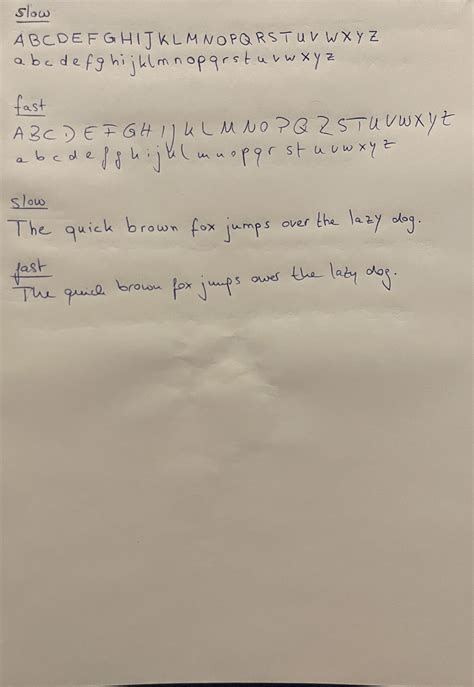 slow
A B C D E F G H I J K L M N O P Q R S T U V W X Y Z
a b c d e f g h i j k l m n o p q r s t u v w x y z
fast
A B C D E F G H I J K L M N O P Q R S T U V W X Y Z
a b c d e f g h i j k l m n o p q r s t u v w x y z
slow
The quick brown fox jumps over the lazy dog.
fast
The quick brown fox jumps over the lazy dog.